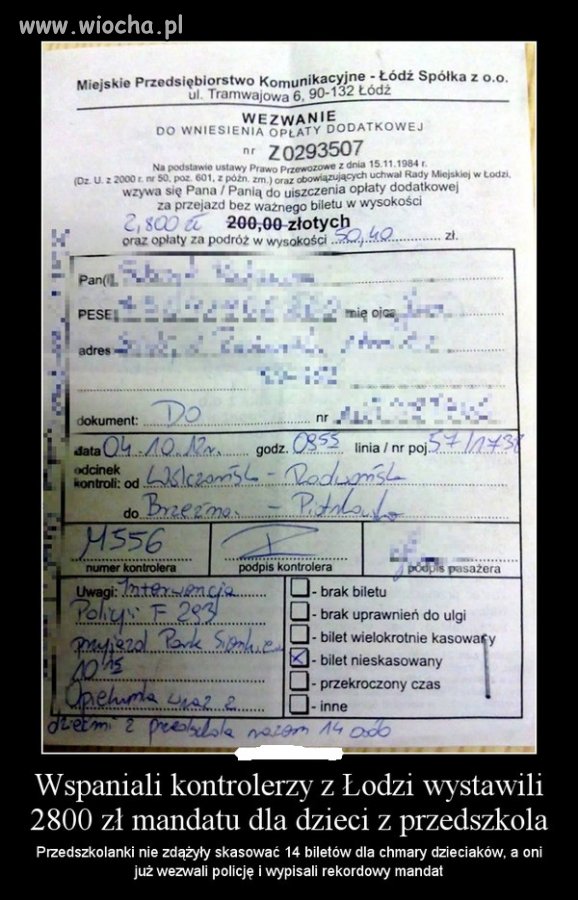 www.wiocha.pl
Miejskie Przedsiębiorstwo Komunikacyjne - Łódź Spółka z o.o.
ul. Tramwajowa 6, 90-132 Łódź
WEZWANIE
DO WNIESIENIA OPŁATY DODATKOWEJ
nr Z0293507
Na podstawie ustawy Prawo Przewozowe z dnia 15.11.1984 r.
(Dz. U. z 2000 r. nr 50, poz. 601, z późn. zm.) oraz obowiązujących uchwał Rady Miejskiej w Łodzi,
wzywa się Pana / Panią do uiszczenia opłaty dodatkowej
za przejazd bez ważnego biletu w wysokości
2,800 zł 200,00 złotych
oraz opłaty za podróż w wysokości 50,40 zł.
Pan(i)
PESEL imię ojca
adres
dokument: DO nr
data 04.10.12r. godz. 0955 linia / nr poj. 57/1738
odcinek
kontroli: od Wólczańska - Radwańska
do Brzeźna - Piotrkowska
M556
numer kontrolera podpis kontrolera podpis pasażera
Uwagi: Interwencja
Policji F 293
przyjazd Park Sienkie
10 15
Opiekunka wraz z
dziećmi z przedszkola razem 14 osób
- brak biletu
- brak uprawnień do ulgi
- bilet wielokrotnie kasowany
- bilet nieskasowany
- przekroczony czas
- inne
Wspaniali kontrolerzy z Łodzi wystawili
2800 zł mandatu dla dzieci z przedszkola
Przedszkolanki nie zdążyły skasować 14 biletów dla chmary dzieciaków, a oni
już wezwali policję i wypisali rekordowy mandat